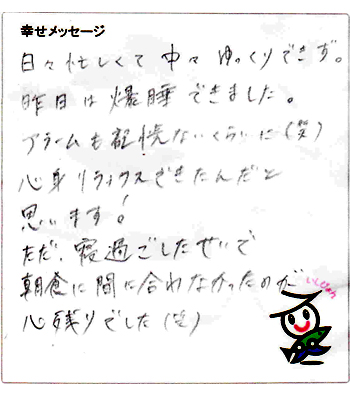 幸せメッセージ
日々忙しくて中々ゆっくりできず。
昨日は爆睡できました。
アラームも記憶ないくらいに(笑)
心身リラックスできたんだと
思います!
ただ、寝過ごしたせいで
朝食に間に合わなかったのが
心残りでした(笑)